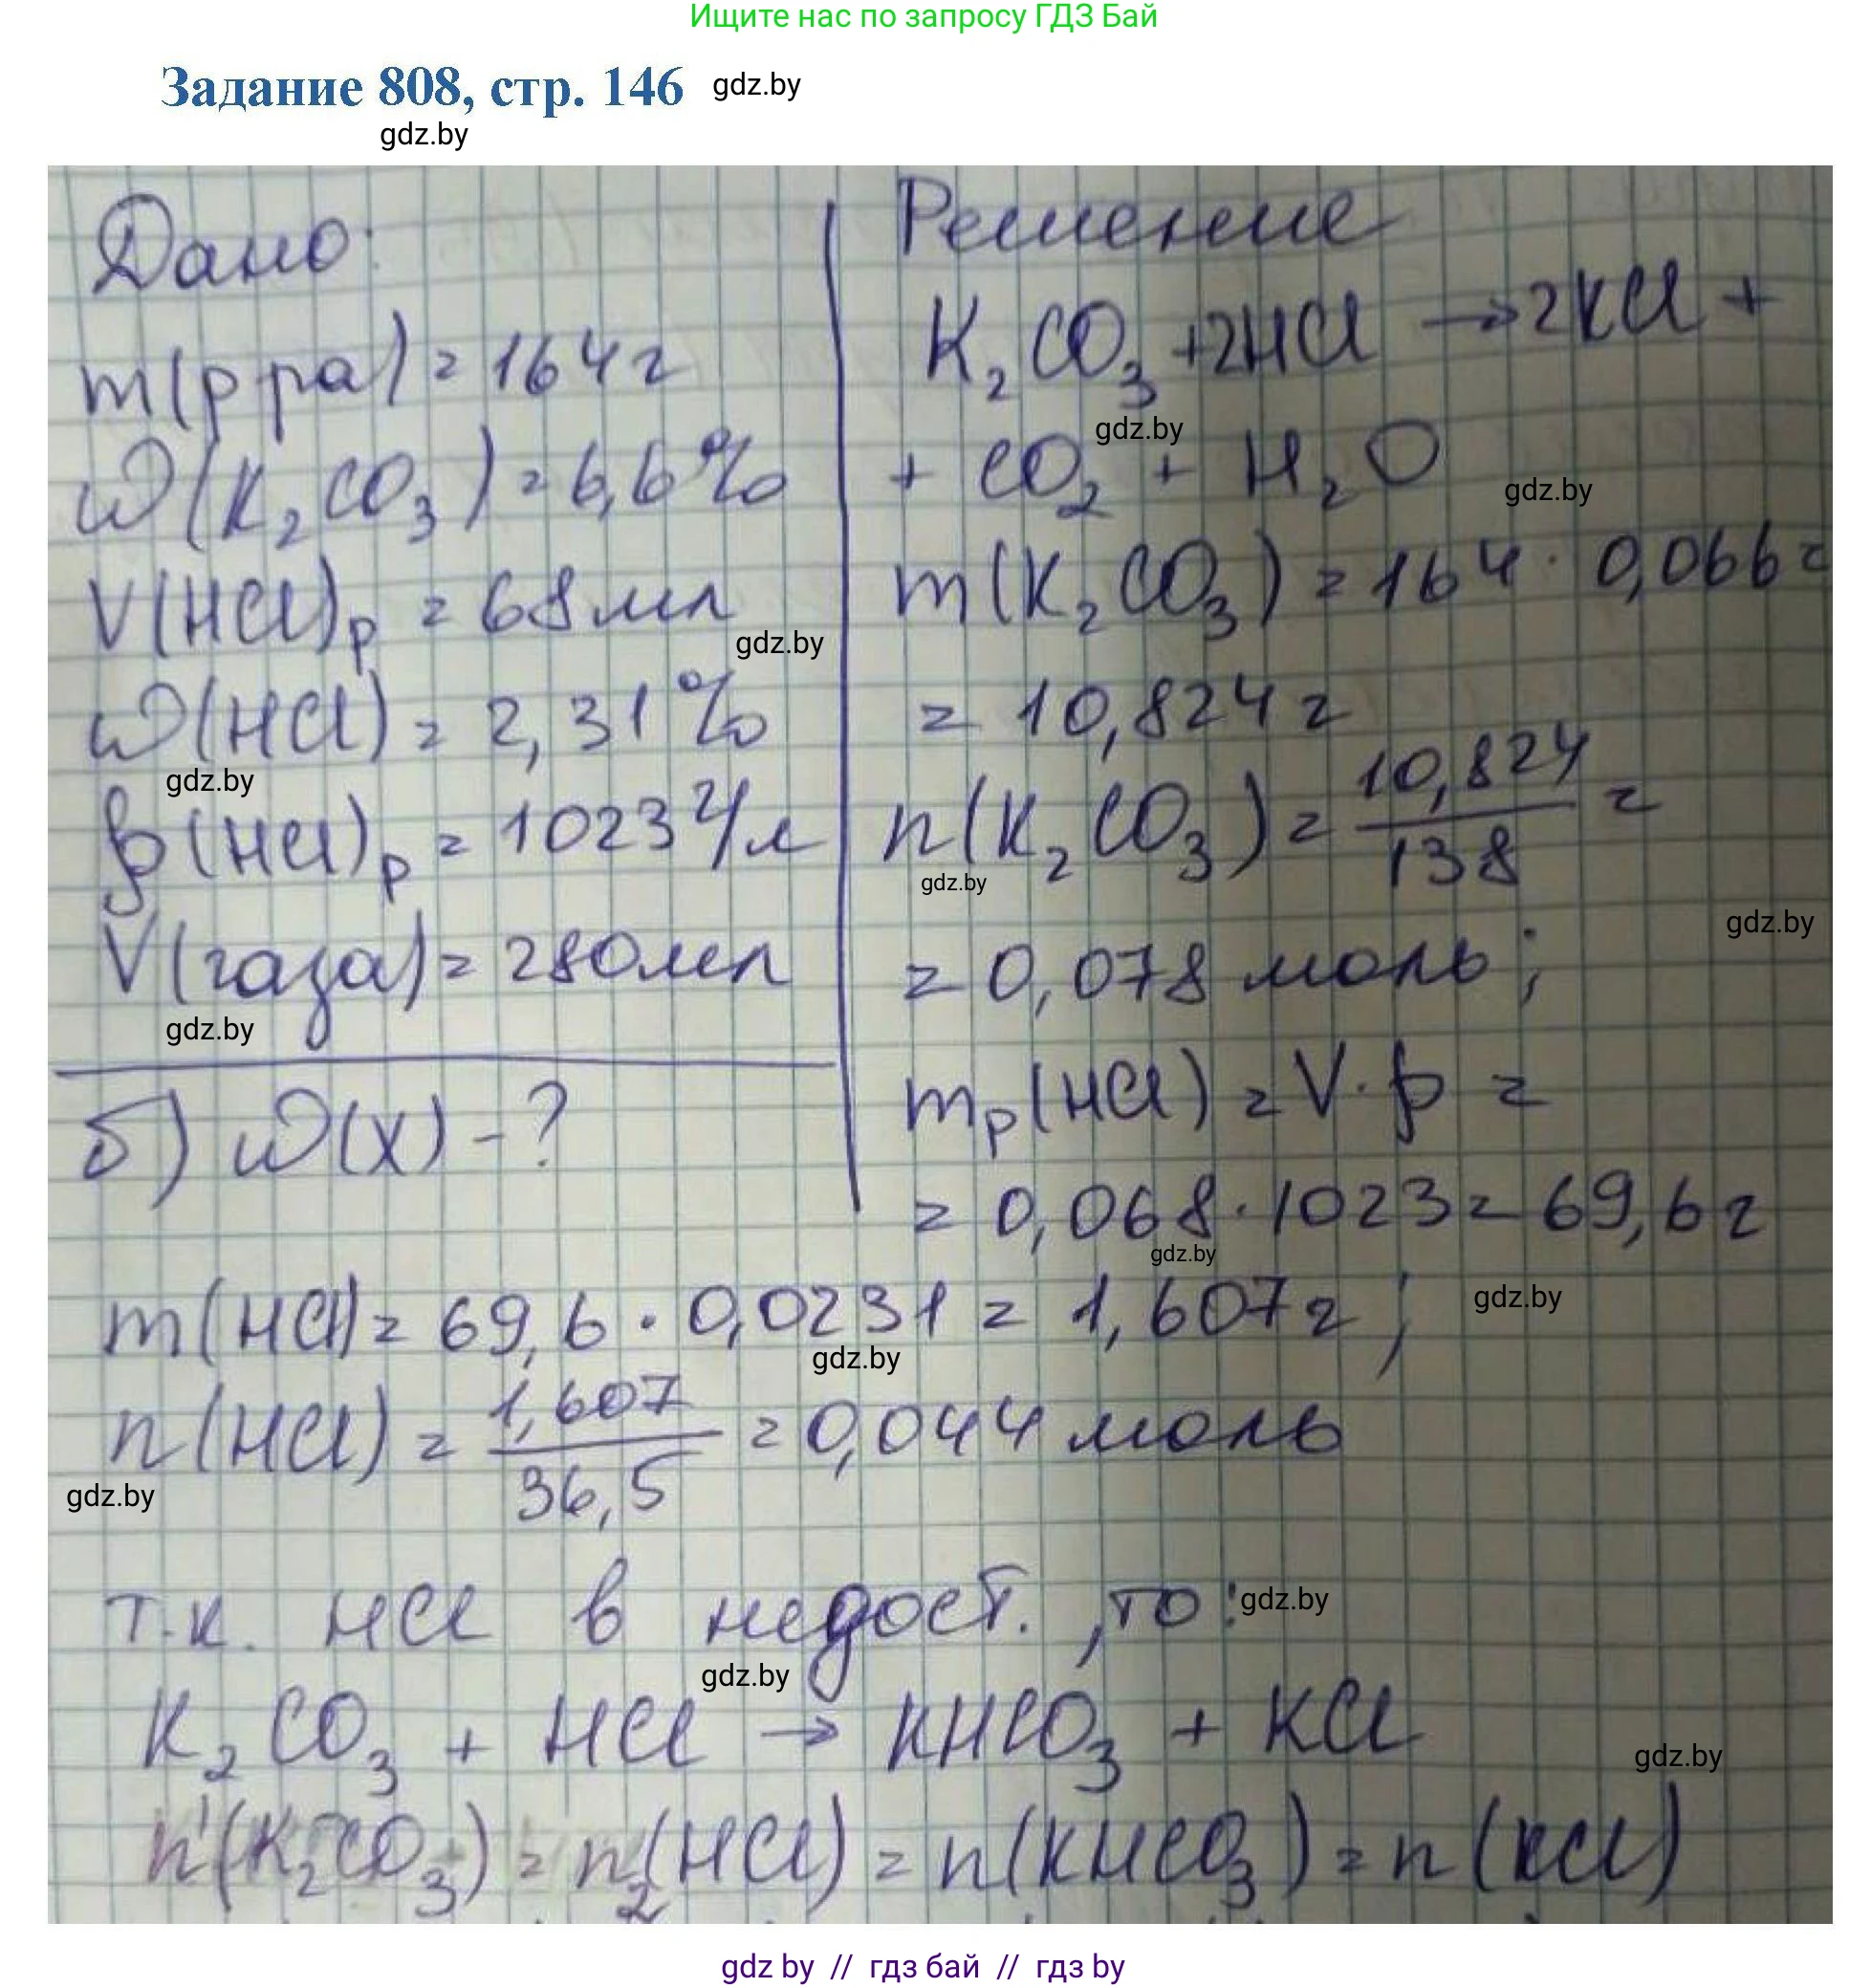 Ищите нас по запросу ГДЗ Бай
Задание 808, стр. 146 gdz.by
gdz.by
Дано:
m(р ра) = 164 г
ω(K₂CO₃) = 6,6%
V(HCl)р = 68 мл
gdz.by
ω(HCl) = 2,31%
gdz.by
ρ(HCl)р = 1023 г/л
V(газа) = 280 мл
gdz.by
б) ω(X) - ?
Решение
K₂CO₃ + 2HCl → 2KCl +
gdz.by
+ CO₂ + H₂O
gdz.by
m(K₂CO₃) = 164 · 0,066 =
= 10,824 г
n(K₂CO₃) = 10,824/138 =
gdz.by
gdz.by
= 0,078 моль;
mр(HCl) = V · ρ =
= 0,068 · 1023 = 69,6 г
gdz.by
m(HCl) = 69,6 · 0,0231 = 1,607 г;
gdz.by
gdz.by
n(HCl) = 1,607/36,5 = 0,044 моль
gdz.by
т.к. HCl в недост., то:
gdz.by
gdz.by
K₂CO₃ + HCl → KHCO₃ + KCl
gdz.by
n¹(K₂CO₃) = n₂(HCl) = n(KHCO₃) = n(KCl)
gdz by // гдз бай // гдз by